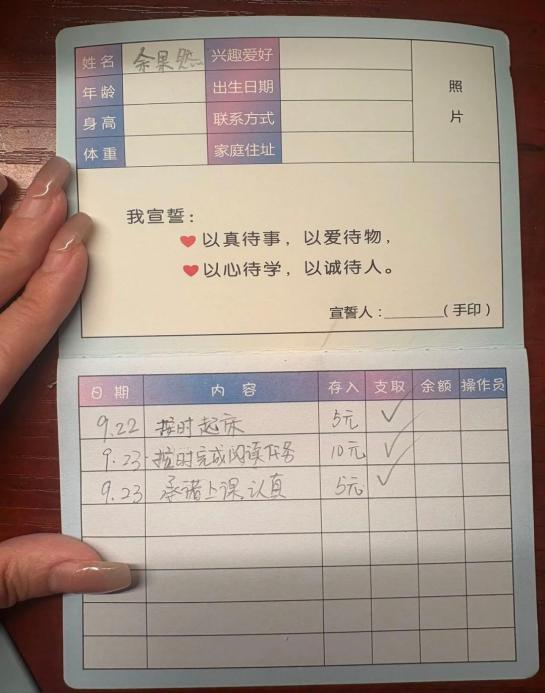 姓名 余果然 兴趣爱好
年龄 出生日期
身高 联系方式
体重 家庭住址
照
片
我宣誓：
以真待事，以爱待物，
以心待学，以诚待人。
宣誓人：________（手印）
日期 内容 存入 支取 余额 操作员
9.22 按时起床 5元 ✓
9.23 按时完成阅读任务 10元 ✓
9.23 承诺上课认真 5元 ✓